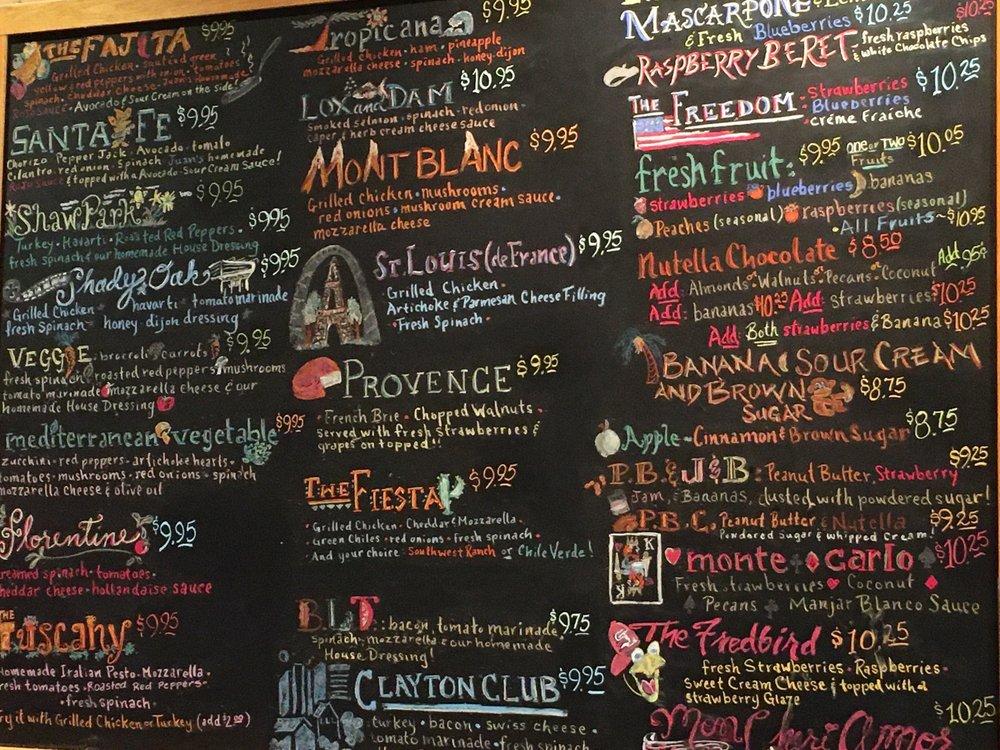 THE FAJITA $9.95
Grilled Chicken, sautéed green
yellow & red peppers with onion, tomatoes
spinach, cheddar cheese, Juan's Homemade
Avocado & Sour Cream on the side!
SANTA FE $9.95
Chorizo, Pepper Jack, Avocado, tomato
Cilantro, red onion, Spinach, Juan's homemade
& topped with a Avocado-Sour Cream Sauce!
$9.95
Shaw Park $9.95
Turkey · Havarti · Roasted Red Peppers ·
fresh spinach & our homemade House Dressing
Shady Oak $9.95
Grilled Chicken havarti tomato marinade
fresh Spinach honey dijon dressing
VEGGIE: broccoli carrots $9.95
fresh spinach roasted red peppers mushrooms
tomato marinade mozzarella cheese & our
homemade House Dressing
mediterranean vegetable $9.95
zucchini · red peppers · artichoke hearts ·
tomatoes · mushrooms · red onions · spinach
mozzarella cheese & olive oil
Florentine $9.95
creamed spinach · tomatoes ·
cheddar cheese · hollandaise sauce
THE Tuscany $9.95
Homemade Italian Pesto · Mozzarella ·
fresh tomatoes · Roasted Red Peppers ·
· fresh spinach ·
try it with Grilled Chicken or Turkey (add $2.00)
Tropicana $9.95
Grilled chicken · ham · pineapple
mozzarella cheese · spinach · honey dijon
LOX and DAM $10.95
smoked salmon · spinach · red onion ·
caper & herb cream cheese sauce
MONT BLANC $9.95
Grilled chicken · mushrooms ·
red onions · mushroom cream sauce ·
mozzarella cheese
ST. LOUIS (de FRANCE) $9.95
Grilled Chicken ·
Artichoke & Parmesan Cheese Filling
· Fresh Spinach ·
PROVENCE $9.95
· French Brie · Chopped Walnuts ·
served with fresh strawberries &
grapes on topped!!
THE FIESTA $9.95
· Grilled Chicken · Cheddar & Mozzarella ·
· Green Chiles · red onions · fresh spinach ·
And your choice: Southwest Ranch or Chile Verde!
B.L.T.: bacon, tomato marinade $9.75
spinach · mozzarella & our homemade
House Dressing!
CLAYTON CLUB $9.95
turkey · bacon · swiss cheese ·
tomato marinade · fresh spinach
MASCARPONE
& Fresh Blueberries $10.25
$10.25
RASPBERRY BERET: fresh raspberries
& white Chocolate Chips
THE FREEDOM: Strawberries $10.25
Blueberries
Créme Fraiche
fresh fruit: $9.95 one or TWO Fruits $10.05
strawberries blueberries bananas
Peaches (seasonal) raspberries (seasonal)
· All Fruits ~ $10.95
Nutella Chocolate $8.50
Add: Almonds or Walnuts or Pecans or Coconut Add 95¢
Add: bananas $10.25 Add: strawberries $10.25
Add: Both strawberries & Banana $10.25
BANANA, SOUR CREAM
AND BROWN
SUGAR $8.75
Apple ~ Cinnamon & Brown Sugar $8.75
P.B. & J & B: Peanut Butter, Strawberry $9.25
Jam, & Bananas, dusted with powdered sugar!
P.B.C. Peanut Butter & Nutella $9.25
Powdered Sugar & whipped Cream!
monte carlo $10.25
Fresh strawberries Coconut
Pecans Manjar Blanco Sauce
The Fredbird $10.25
fresh Strawberries · Raspberries ·
Sweet Cream Cheese & topped with a
strawberry Glaze
Mon Cheri Amor $10.25